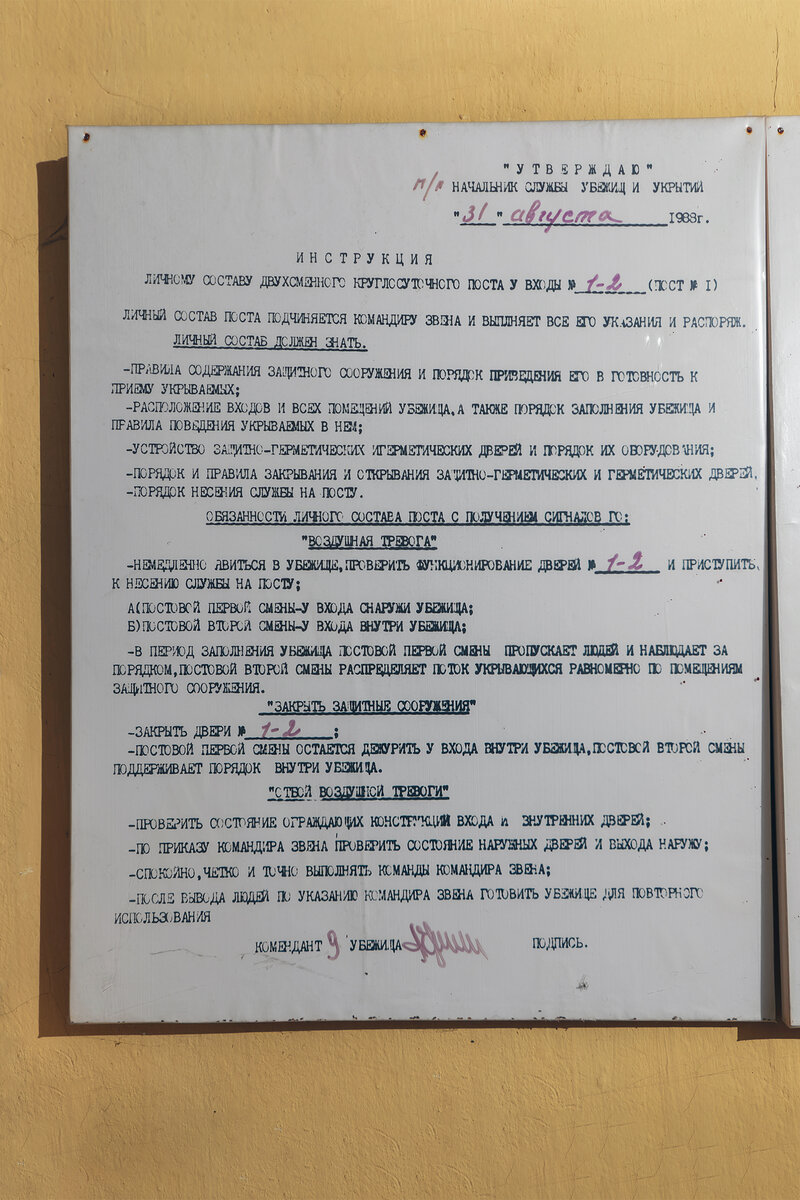 "УТВЕРЖДАЮ"
п/п НАЧАЛЬНИК СЛУЖБЫ УБЕЖИЩ И УКРЫТИЙ
"31" августа 1983г.
ИНСТРУКЦИЯ
ЛИЧНОМУ СОСТАВУ ДВУХСМЕННОГО КРУГЛОСУТОЧНОГО ПОСТА У ВХОДЫ № 1-2 (ПОСТ № I)
ЛИЧНЫЙ СОСТАВ ПОСТА ПОДЧИНЯЕТСЯ КОМАНДИРУ ЗВЕНА И ВЫПЛНЯЕТ ВСЕ ЕГО УКАЗАНИЯ И РАСПОРЯЖ.
ЛИЧНЫЙ СОСТАВ ДОЛЖЕН ЗНАТЬ.
-ПРАВИЛА СОДЕРЖАНИЯ ЗАЩИТНОГО СООРУЖЕНИЯ И ПОРЯДОК ПРИВЕДЕНИЯ ЕГО В ГОТОВНОСТЬ К
ПРИЕМУ УКРЫВАЕМЫХ;
-РАСПОЛОЖЕНИЕ ВХОДОВ И ВСЕХ ПОМЕЩЕНИЙ УБЕЖИЦА,А ТАКЖЕ ПОРЯДОК ЗАПОЛНЕНИЯ УБЕЖИЦА И
ПРАВИЛА ПОВЕДЕНИЯ УКРЫВАЕМЫХ В НЕМ;
-УСТРОЙСТВО ЗАЩИТНО-ГЕРМЕТИЧЕСКИХ ИГЕРМЕТИЧЕСКИХ ДВЕРЕЙ И ПОРЯДОК ИХ ОБОРУДОВАНИЯ;
-ПОРЯДОК И ПРАВИЛА ЗАКРЫВАНИЯ И ОТКРЫВАНИЯ ЗАЩИТНО-ГЕРМЕТИЧЕСКИХ И ГЕРМЕТИЧЕСКИХ ДВЕРЕЙ.
-ПОРЯДОК НЕСЕНИЯ СЛУЖБЫ НА ПОСТУ.
ОБЯЗАННОСТИ ЛИЧНОГО СОСТАВА ПОСТА С ПОЛУЧЕНИЕМ СИГНАЛОВ ГО:
"ВОЗДУШНАЯ ТРЕВОГА"
-НЕМЕДЛЕННО ЯВИТЬСЯ В УБЕЖИЩЕ,ПРОВЕРИТЬ ФУНКЦИОНИРОВАНИЕ ДВЕРЕЙ № 1-2 И ПРИСТУПИТЬ
К НЕСЕНИЮ СЛУЖБЫ НА ПОСТУ;
А(ПОСТОВОЙ ПЕРВОЙ СМЕНЫ-У ВХОДА СНАРУЖИ УБЕЖИЦА;
Б)ПОСТОВОЙ ВТОРОЙ СМЕНЫ-У ВХОДА ВНУТРИ УБЕЖИЦА;
-В ПЕРИОД ЗАПОЛНЕНИЯ УБЕЖИЩА ПОСТОВОЙ ПЕРВОЙ СМЕНЫ ПРОПУСКАЕТ ЛЮДЕЙ И НАБЛЮДАЕТ ЗА
ПОРЯДКОМ,ПОСТОВОЙ ВТОРОЙ СМЕНЫ РАСПРЕДЕЛЯЕТ ПОТОК УКРЫВАЮЩИХСЯ РАВНОМЕРНО ПО ПОМЕЩЕНИЯМ
ЗАЩИТНОГО СООРУЖЕНИЯ.
"ЗАКРЫТЬ ЗАЩИТНЫЕ СООРУЖЕНИЯ"
-ЗАКРЫТЬ ДВЕРИ № 1-2 ;
-ПОСТОВОЙ ПЕРВОЙ СМЕНЫ ОСТАЕТСЯ ДЕЖУРИТЬ У ВХОДА ВНУТРИ УБЕЖИЦА,ПОСТОВОЙ ВТОРОЙ СМЕНЫ
ПОДДЕРЖИВАЕТ ПОРЯДОК ВНУТРИ УБЕЖИЦА.
"ОТБОЙ ВОЗДУШНОЙ ТРЕВОГИ"
-ПРОВЕРИТЬ СОСТОЯНИЕ ОГРАЖДАЮЩИХ КОНСТРУКЦИЙ ВХОДА И ВНУТРЕННИХ ДВЕРЕЙ;
-ПО ПРИКАЗУ КОМАНДИРА ЗВЕНА ПРОВЕРИТЬ СОСТОЯНИЕ НАРУЖНЫХ ДВЕРЕЙ И ВЫХОДА НАРУЖУ;
-СПОКОЙНО,ЧЕТКО И ТОЧНО ВЫПОЛНЯТЬ КОМАНДЫ КОМАНДИРА ЗВЕНА;
-ПОСЛЕ ВЫВОДА ЛЮДЕЙ ПО УКАЗАНИЮ КОМАНДИРА ЗВЕНА ГОТОВИТЬ УБЕЖИЩЕ ДЛЯ ПОВТОРНОГО
ИСПОЛЬЗОВАНИЯ
КОМЕНДАНТ 9 УБЕЖИЦА ПОДПИСЬ.